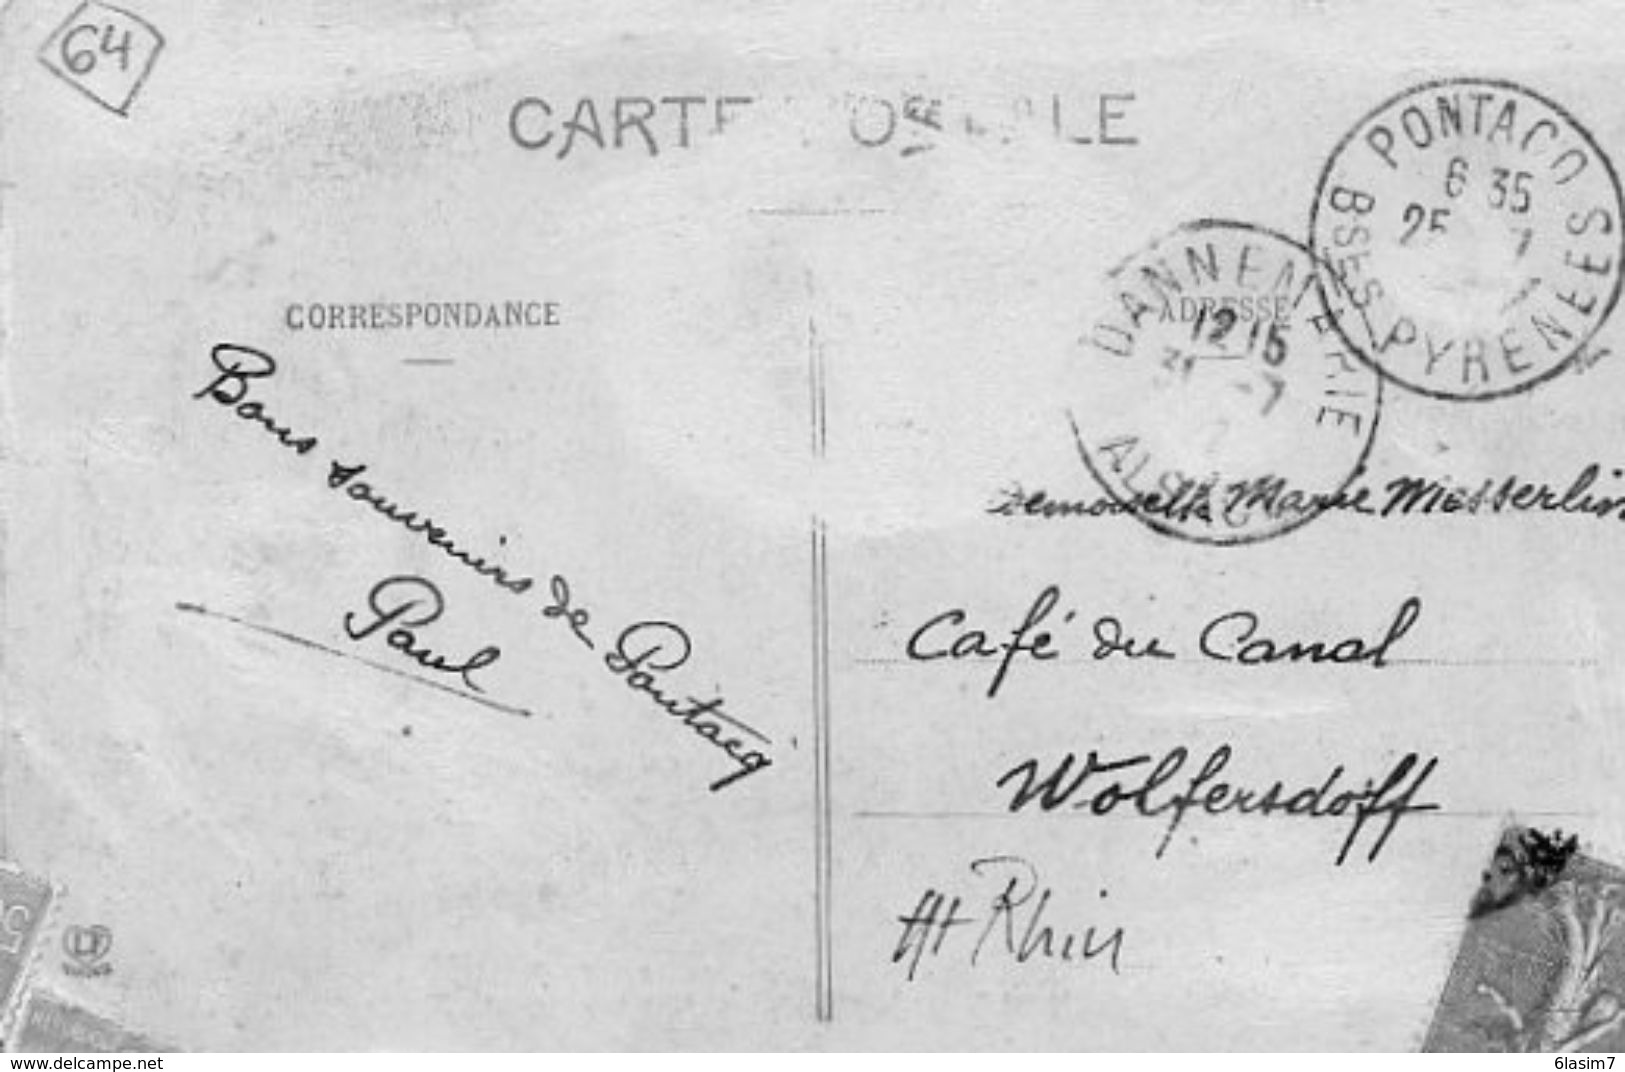 64
CARTE POSTALE
PONTACQ
6 35
25 7
BSES PYRENEES
DANNEMERIE
12 15
31 -7
ALSACE
CORRESPONDANCE
ADRESSE
Bons souvenirs de Pontacq
Paul
Demoiselle Marie Messerlin
Café du Canal
Wolfersdorff
Ht Rhin
LF
www.delcampe.net
6lasim7